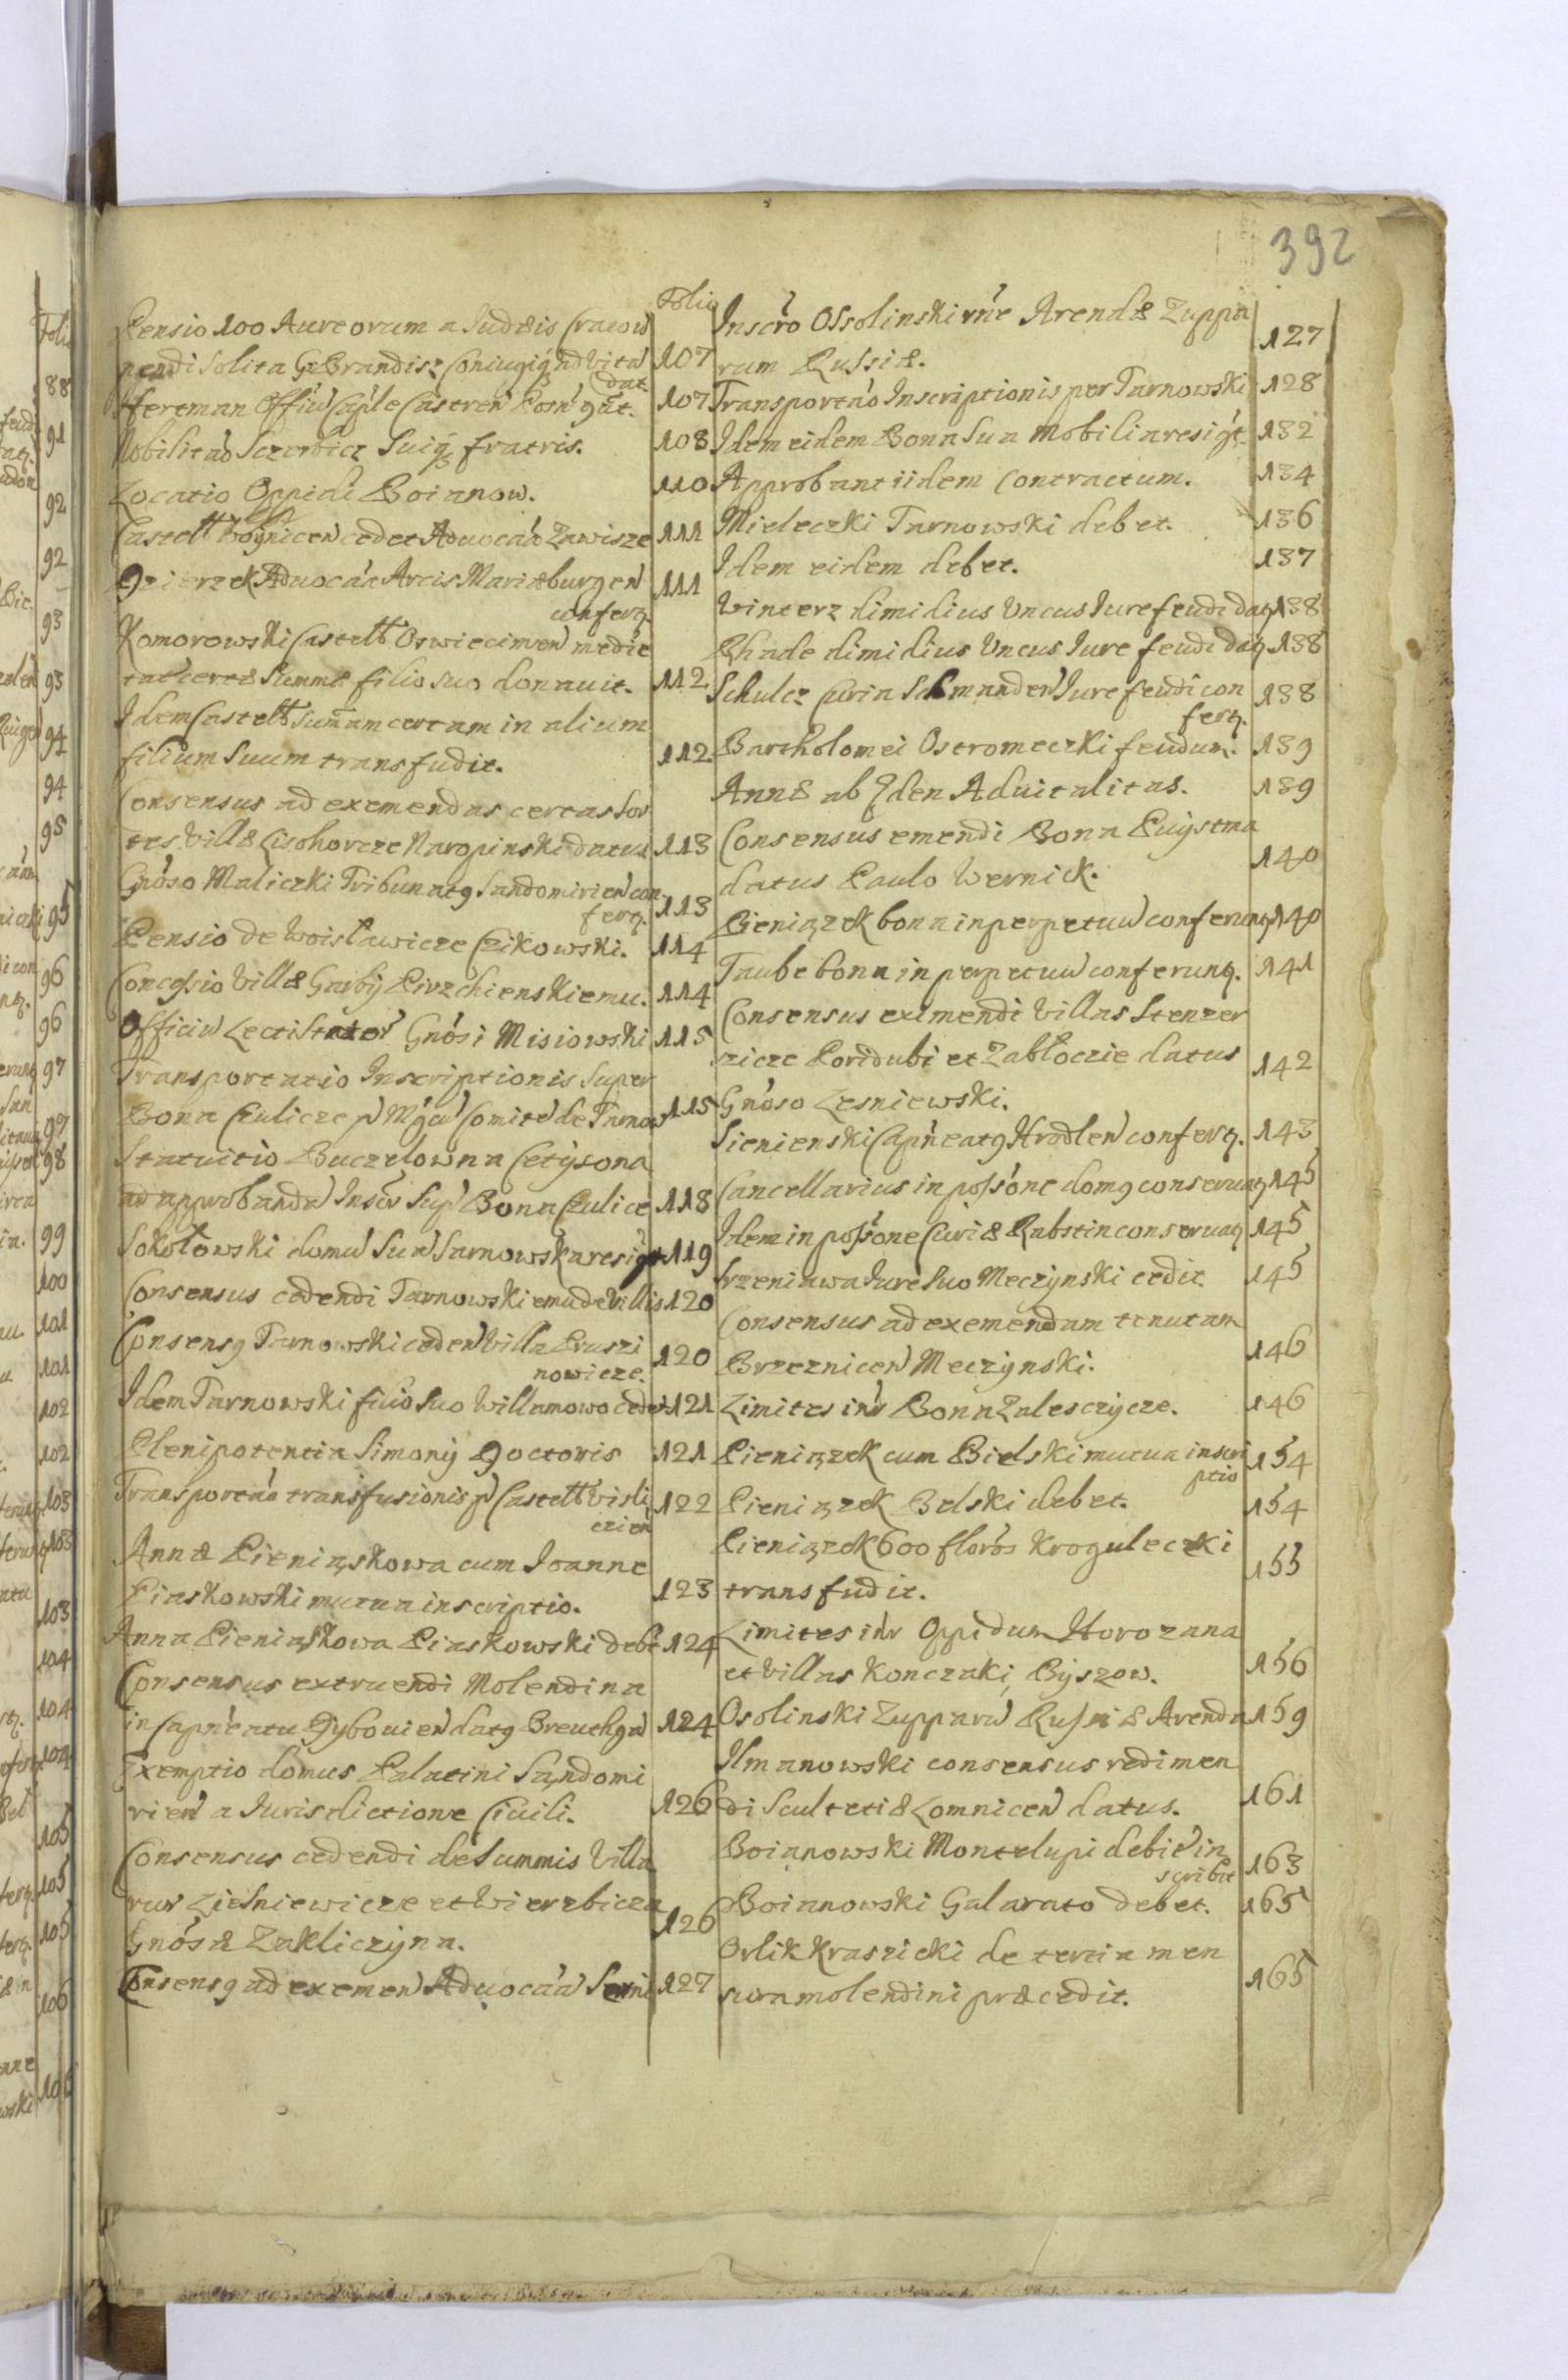 392
Folio
Pensio 100 Aureorum a Iudæis Cracoụ
pendi solita G Brandisz Coniugiq; ad vita 107
dat.
Hertman Officiu Cap̃le Castren Posn̄ 107
Nobilitaõ Sczerbicz Suiq; fratris. 108
Locatio Oppidi Boianow. 110
Castell Woynicen cedet Aduocaã Zawisze 111
Dzierzek Aduocaã Arcis Mariæburgen 111
confertʒ.
Komorowski Castell Oswiecimen medie
tat certæ Summæ filio suo donauit. 112
Idem Castell Sum̃am certam in alium
filium Suum transfudit. 112.
Consensus ad exemendas certas Sor
tes Villæ Lisohorcze Naropinski datus 113
Gnõso Maliczki Tribunatꝯ Sandomirien con
fertʒ. 113
Pensio de Woisławicze Czikowski. 114
Concessio Villæ Garby Pirzchienskiemu. 114
Officiu Lectistrator Gnõsi Misiowski 115
Transportatio Inscriptionis Super
Bona Czulicze p Mg̃cu Comite de Tarnow 115
Statuitio Buczelowna Cetysona
ad approbanda Inscr Sup Bona Czulice 118
Sokołowski domu Sua Sarnowska resigt 119
Consensus cedendi Tarnowskiemu de Villis 120
Consensꝯ Tarnowski ceden Villa Pruszi
nowicze. 120
Idem Tarnowski filio Suo Willamowo cedet 121
Plenipotentia Simony Doctoris 121
Transportaõ transfusionis p Castell Visli
czien 122
Annæ Pieniązkowa cum Ioanne
Piaskowski mutua inscriptio. 123
Anna Pieniąskowa Piaskowski debet 124
Consensus extruendi Molendina
in Capñeatu Dybouien datꝯ Breuchga 124
Exemptio domus Palatini Sandomi
rien a Iurisdictione Ciuili. 126
Consensus cedendi de Summis Villa
rum Liesniewicze et Wierzbicza
Gnõsæ Zakliczyna. 126
Consensꝯ ad exemen Aduocaã Semi 127
Inscr̃o Ossolinski rñe Arendæ Zuppa
rum Russiæ. 127
Transportaõ Inscriptionis per Tarnowski 128
Idem eidem Bona Sua Mobilia resigt 132
Approbant iidem Contractum. 134
Mieleczki Tarnowski debet. 136
Idem eidem debet. 137
Vinterz dimidius Uncus Iure feudi datʒ 138
Rhade dimidius Uncus Iure feudi datʒ 138
Schulcz Curia Schmanden Iure feudi con
fertʒ. 138
Bartholomei Ostromeczki feudum. 139
Annæ ab Eden Aduitalitas. 139
Consensus emendi Bona Puystma
datus Paulo Wernick. 140
Pieniązek bona in perpetuu conferuntʒ 140
Taube bona in perpetuu conferuntʒ. 141
Consensus eximendi Villas Stenzer
zicze Poridubi et Zabłoczie datus
Gnõso Lesniewski. 142
Sienienski Capñeatꝯ Hrodlen confertʒ. 143
Cancellarius in poss̃one domꝯ conseruatʒ 145
Idem in poss̃one Curiæ Rabstin conseruatʒ 145
Srzeniawa Iure Suo Meczynski cedit 145
Consensus ad exemendam tenutam
Brzeznicen Meczynski. 146
Limites int̃r Bona Zalesczycze. 146
Pieniązek cum Bielski mutua inscri
ptio 154
Pieniązek Belski debet. 154
Pieniązek 600 florõs Kroguleczki
transfudit. 155
Limites int̃r Oppidum Horozana
et Villas Konczaki, Byszow. 156
Osolinski Zupparu Russiæ Arenda 159
Ilmanowski consensus redimen
di Scultetiæ Lomnicen datus. 161
Boianowski Montelupi debit in
scribit 163
Boianowski Galarato debet. 165
Orlik Kraszicki de tertia men
sura molendini præcedit. 165